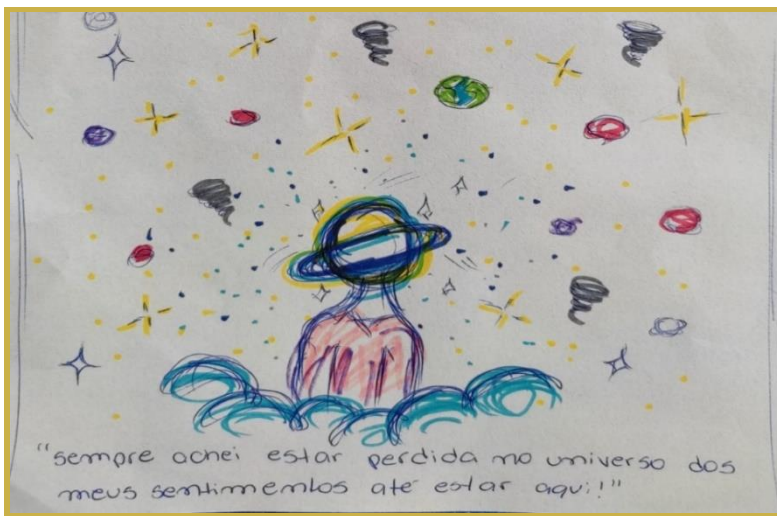 "sempre achei estar perdida no universo dos
meus sentimentos até estar aqui!"